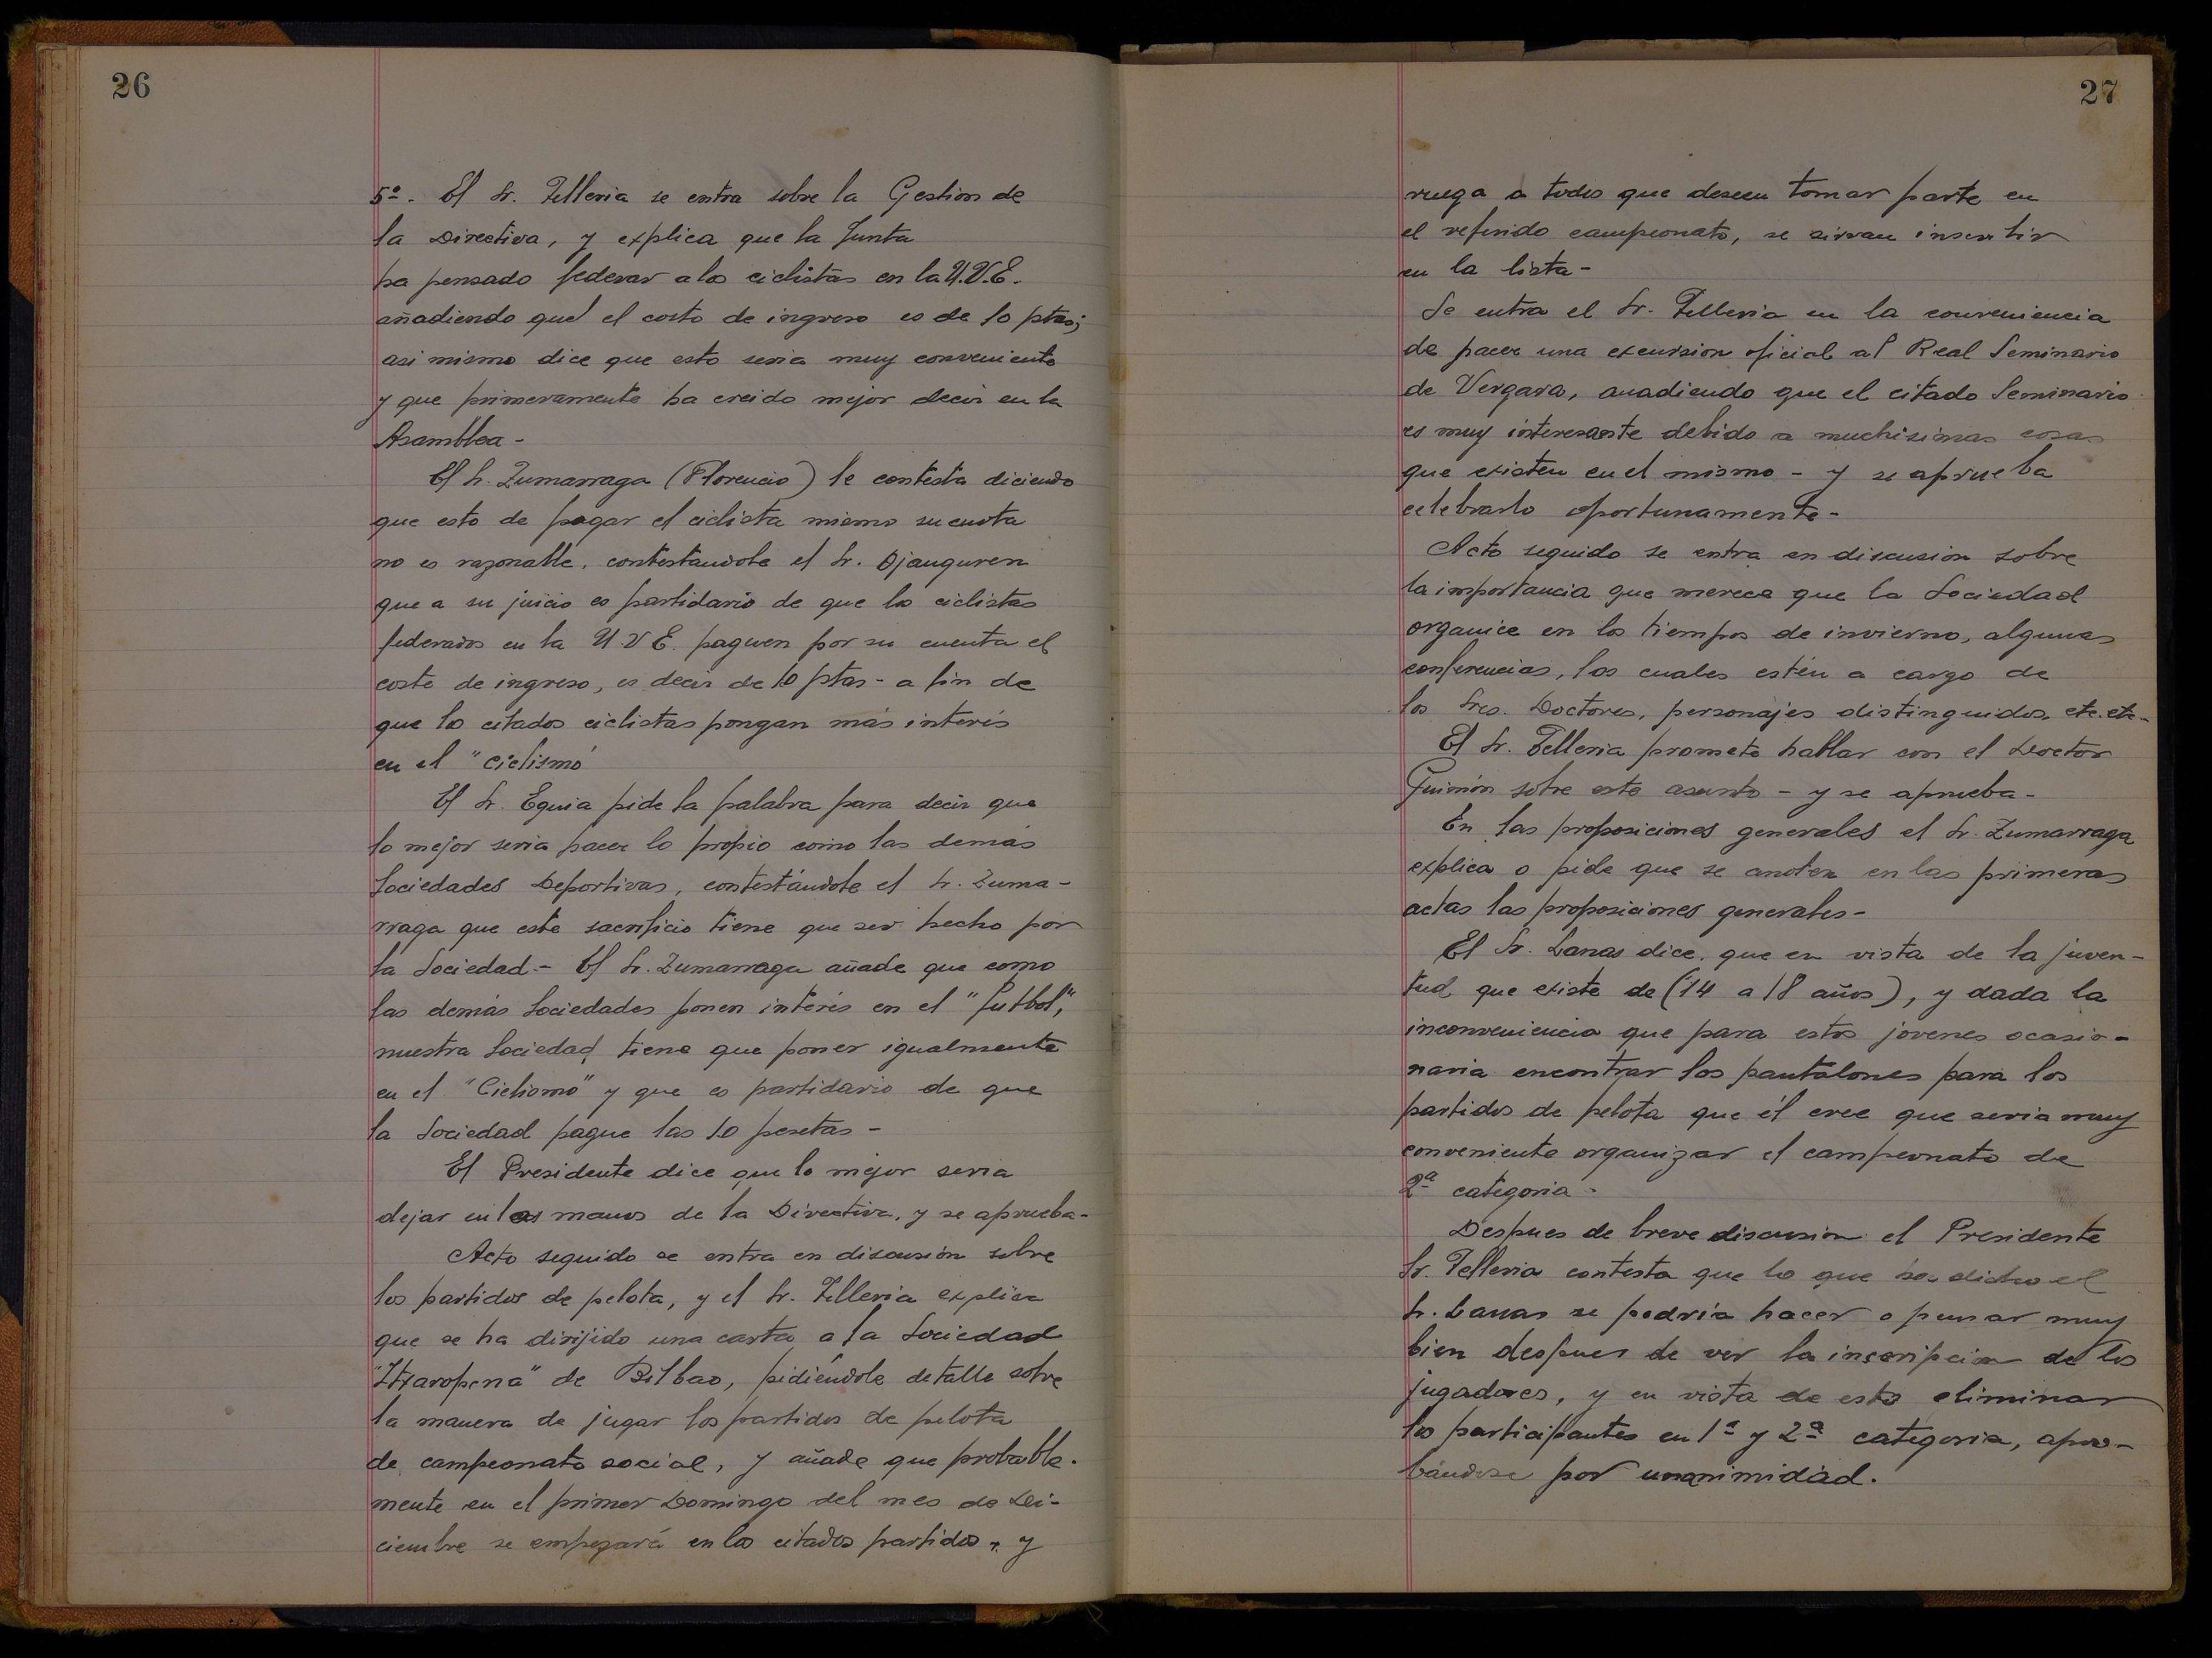 26
5º-. El Sr. Telleria se entra sobre la Gestion de
la Directiva, y explica que la Junta
ha pensado federar a los ciclistas en la U.V.E.
añadiendo que el costo de ingreso es de 10 ptas;
asi mismo dice que esto seria muy conveniente
y que primeramente ha creido mejor decir en la
Asamblea -
El Sr. Zumarraga (Florencio) le contesta diciendo
que esto de pagar el ciclista mismo su cuota
no es razonable, contestandole el Sr. Ojanguren
que a su juicio es partidario de que los ciclistas
federados en la U.V.E. paguen por su cuenta el
coste de ingreso, es decir de 10 ptas - a fin de
que los citados ciclistas pongan más interés
en el "ciclismo"
El Sr. Eguia pide la palabra para decir que
lo mejor seria hacer lo propio como las demás
Sociedades Deportivas, contestándole el Sr. Zuma-
rraga que este sacrificio tiene que ser hecho por
la Sociedad.- El Sr. Zumarraga añade que como
las demás Sociedades ponen interés en el "futbol",
nuestra Sociedad tiene que poner igualmente
en el "Ciclismo" y que es partidario de que
la Sociedad pague las 10 pesetas -
El Presidente dice que lo mejor seria
dejar en las manos de la Directiva, y se aprueba -
Acto seguido se entra en discusión sobre
los partidos de pelota, y el Sr. Telleria explica
que se ha dirijido una carta a la Sociedad
"Itxaropena" de Bilbao, pidiéndole detalle sobre
la manera de jugar los partidos de pelota
de campeonato social, y añade que probable-
mente en el primer Domingo del mes de Di-
ciembre se empezará en los citados partidos, y
27
ruega a todos que deseen tomar parte en
el referido campeonato, se sirvan inscribir
en la lista -
Se entra el Sr. Telleria en la conveniencia
de hacer una excursion oficial al Real Seminario
de Vergara, anadiendo que el citado Seminario
es muy interesante debido a muchisimas cosas
que existen en el mismo - y se aprueba
celebrarlo oportunamente -
Acto seguido se entra en discusion sobre
la importancia que merece que la Sociedad
organice en los tiempos de invierno, algunas
conferencias, las cuales estén a cargo de
los Sres. Doctores, personajes distinguidos, etc. etc -
El Sr. Telleria promete hablar con el Doctor
Guimón sobre este asunto - y se aprueba -
En las proposiciones generales el Sr. Zumarraga
explica o pide que se anoten en las primeras
actas las proposiciones generales -
El Sr. Lanas dice, que en vista de la juven-
tud que existe de (14 a 18 años), y dada la
inconveniencia que para estos jovenes ocasio-
naria encontrar los pantalones para los
partidos de pelota que él cree que seria muy
conveniente organizar el campeonato de
2ª categoria -
Despues de breve discusion el Presidente
Sr. Telleria contesta que lo que ha dicho el
Sr. Lanas se podría hacer o pensar muy
bien despues de ver la inscripcion de los
jugadores, y en vista de esto eliminar
los participantes en 1ª y 2ª categoria, apro-
bándose por unanimidad.